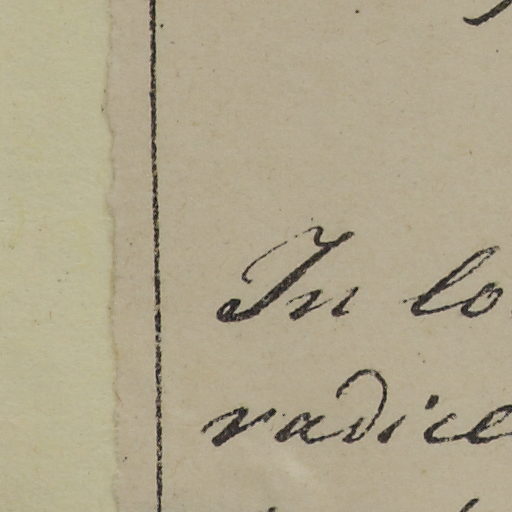 In lo
radice